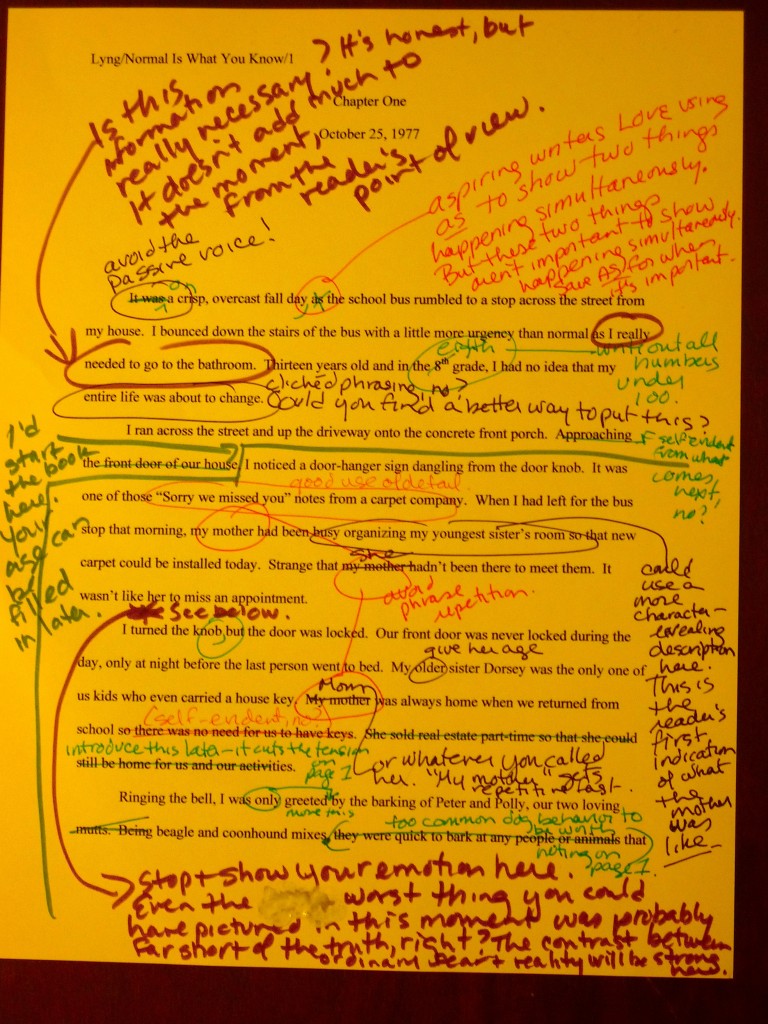 Lyng/Normal Is What You Know/1
Is this
information
really necessary? It's honest, but
it doesn't add much to
the moment,
from the
reader's
point of view.
Chapter One
October 25, 1977
aspiring writers LOVE using
as to show two things
happening simultaneously.
But these two things
aren't important to show
happening simultaneously.
Save AS for when
it's important.
avoid the
passive voice!
on
It was a crisp, overcast fall day as the school bus rumbled to a stop across the street from
my house. I bounced down the stairs of the bus with a little more urgency than normal as I really
eighth
write out all
numbers
under
100.
needed to go to the bathroom. Thirteen years old and in the 8th grade, I had no idea that my
clichéd phrasing, no?
entire life was about to change.
Could you find a better way to put this?
I ran across the street and up the driveway onto the concrete front porch. Approaching
self evident
from what
comes
next,
no?
I'd
start
the book
here.
Your
age can
be
filled
in later.
the front door of our house, I noticed a door-hanger sign dangling from the door knob. It was
good use of detail
one of those “Sorry we missed you” notes from a carpet company. When I had left for the bus
stop that morning, my mother had been busy organizing my youngest sister's room so that new
she
carpet could be installed today. Strange that my mother hadn't been there to meet them. It
avoid
phrase
repetition.
wasn't like her to miss an appointment.
could
use a
more
character-
revealing
description
here.
This is
the
reader's
first
indication
of what
the
mother
was
like.
See below.
I turned the knob but the door was locked. Our front door was never locked during the
give her age
day, only at night before the last person went to bed. My older sister Dorsey was the only one of
Mom
us kids who even carried a house key. My mother was always home when we returned from
(self-evident, no?)
school so there was no need for us to have keys. She sold real estate part-time so that she could
introduce this later - it cuts the tension
on
page 1
still be home for us and our activities.
or whatever you called
her. "My mother" gets
repetitive fast.
Ringing the bell, I was only greeted by the barking of Peter and Polly, our two loving
move this
too common dog behavior to
be worth
noting on
page 1.
mutts. Being beagle and coonhound mixes, they were quick to bark at any people or animals that
Stop + show your emotion here.
Even the worst thing you could
have pictured in this moment was probably
far short of the truth, right? The contrast between
ordinary fear + reality will be strong
here.